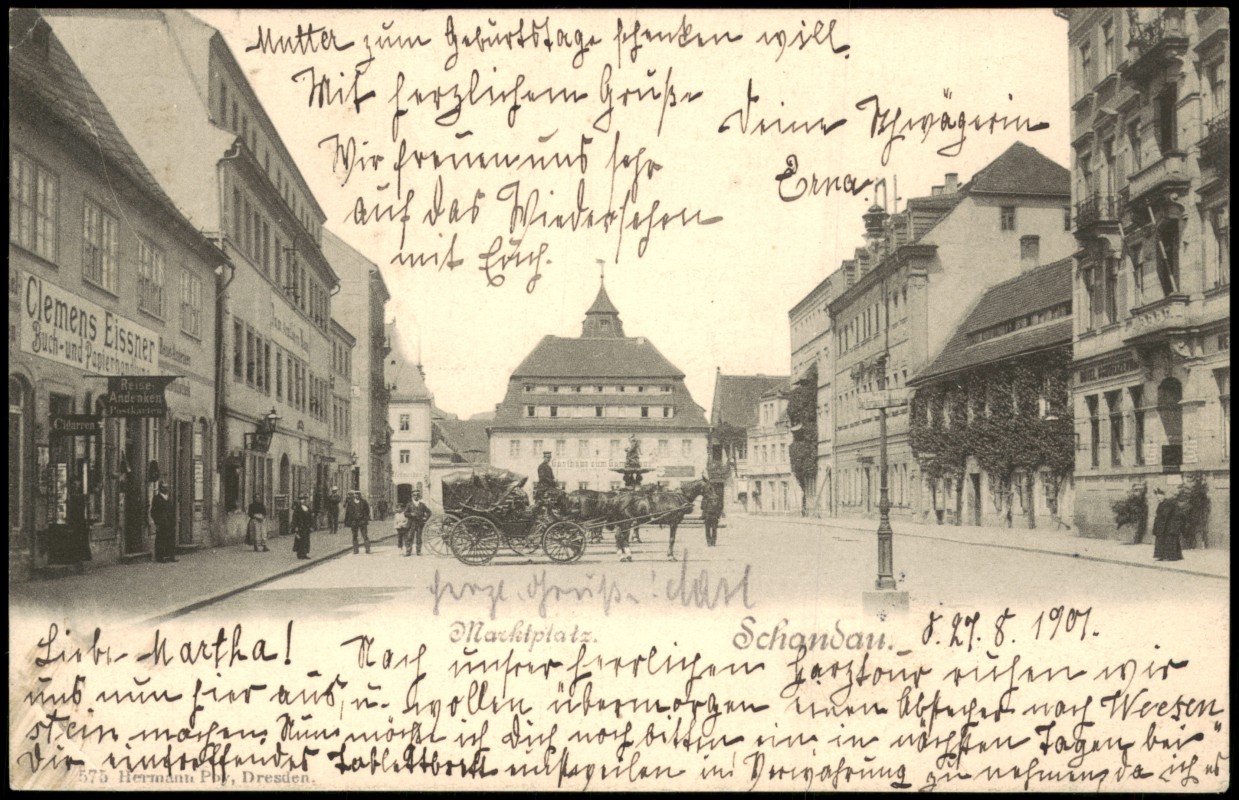 Mutter zum Geburtstage schenken will.
Mit herzlichem Gruße
Deine Schwägerin
Erna.
Wir freuen uns sehr
auf das Wiedersehen
mit Erich.
Clemens Eissner
Buch- und Papierhandlung
Reise-
Andenken
Postkarten
Cigarren
herzl. Gruße!
Marktplatz.
Schandau.
d. 27. 8. 1901.
Liebe Martha! Nach unsrer herrlichen Harztour ruhen wir
uns nun hier aus, u. wollen übermorgen einen Abstecher nach Weesen
stein machen. Nun möcht ich Dich noch bitten ein, in nächsten Tagen bei
Dir eintreffendes Tablettbrett einstweilen in Verwahrung zu nehmen, da ich es
575 Hermann Poy, Dresden.